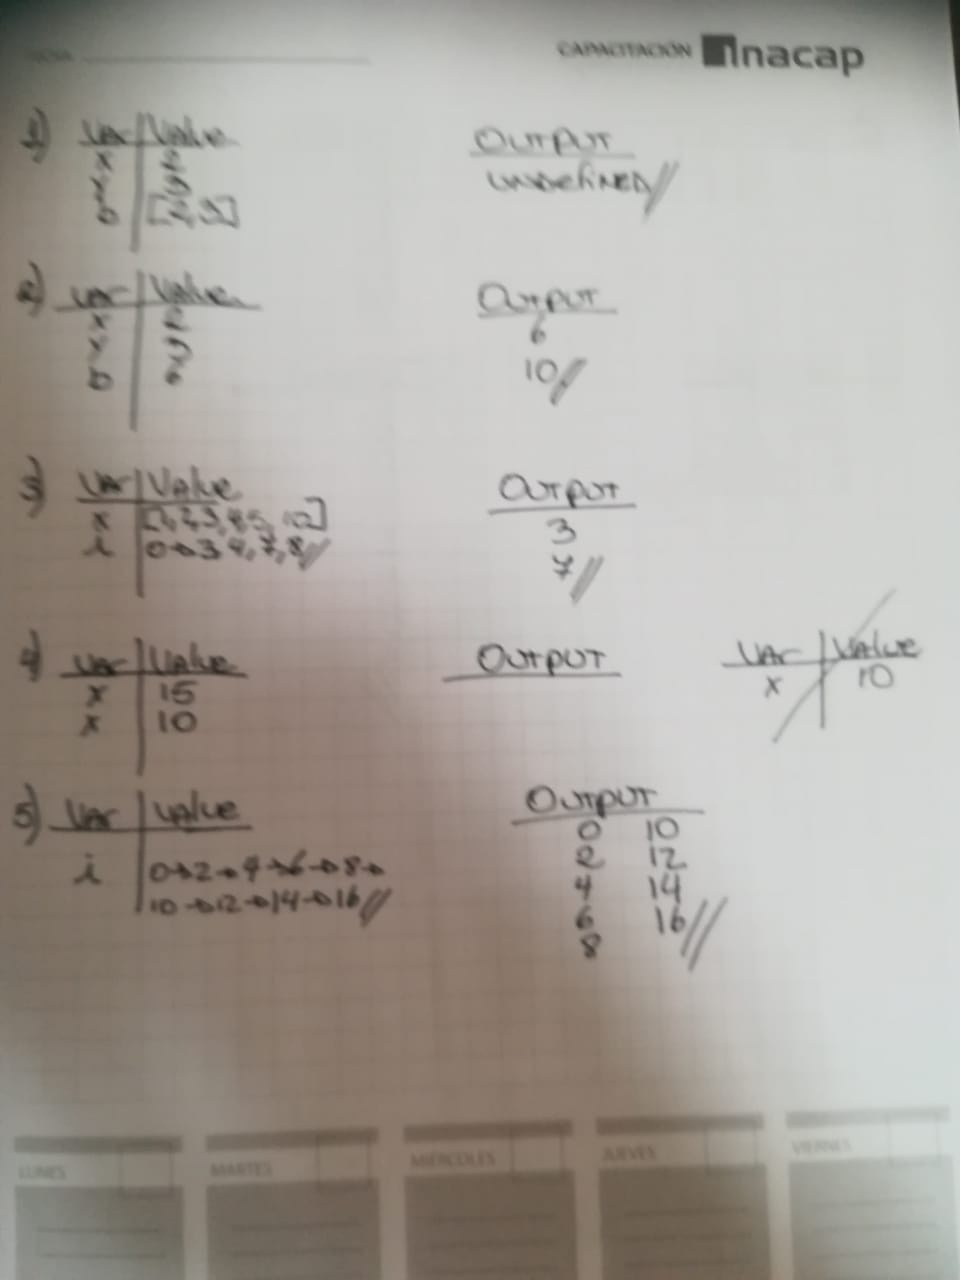 CAPACITACIÓN Inacap
1) Var Value
x 2
[2,3]
OUTPUT
UNDEFINED
2) Var Value
x 2
b 6
OUTPUT
6
10
3) Var Value
x
i 0→3 4, 7, 8
OUTPUT
3
7
4) Var Value
x 15
x 10
OUTPUT
Var Value
x 10
5) Var Value
i 0→2→4→6→8→
10→12→14→16
OUTPUT
0 10
2 12
4 14
6 16
8
LUNES MARTES MIERCOLES JUEVES VIERNES